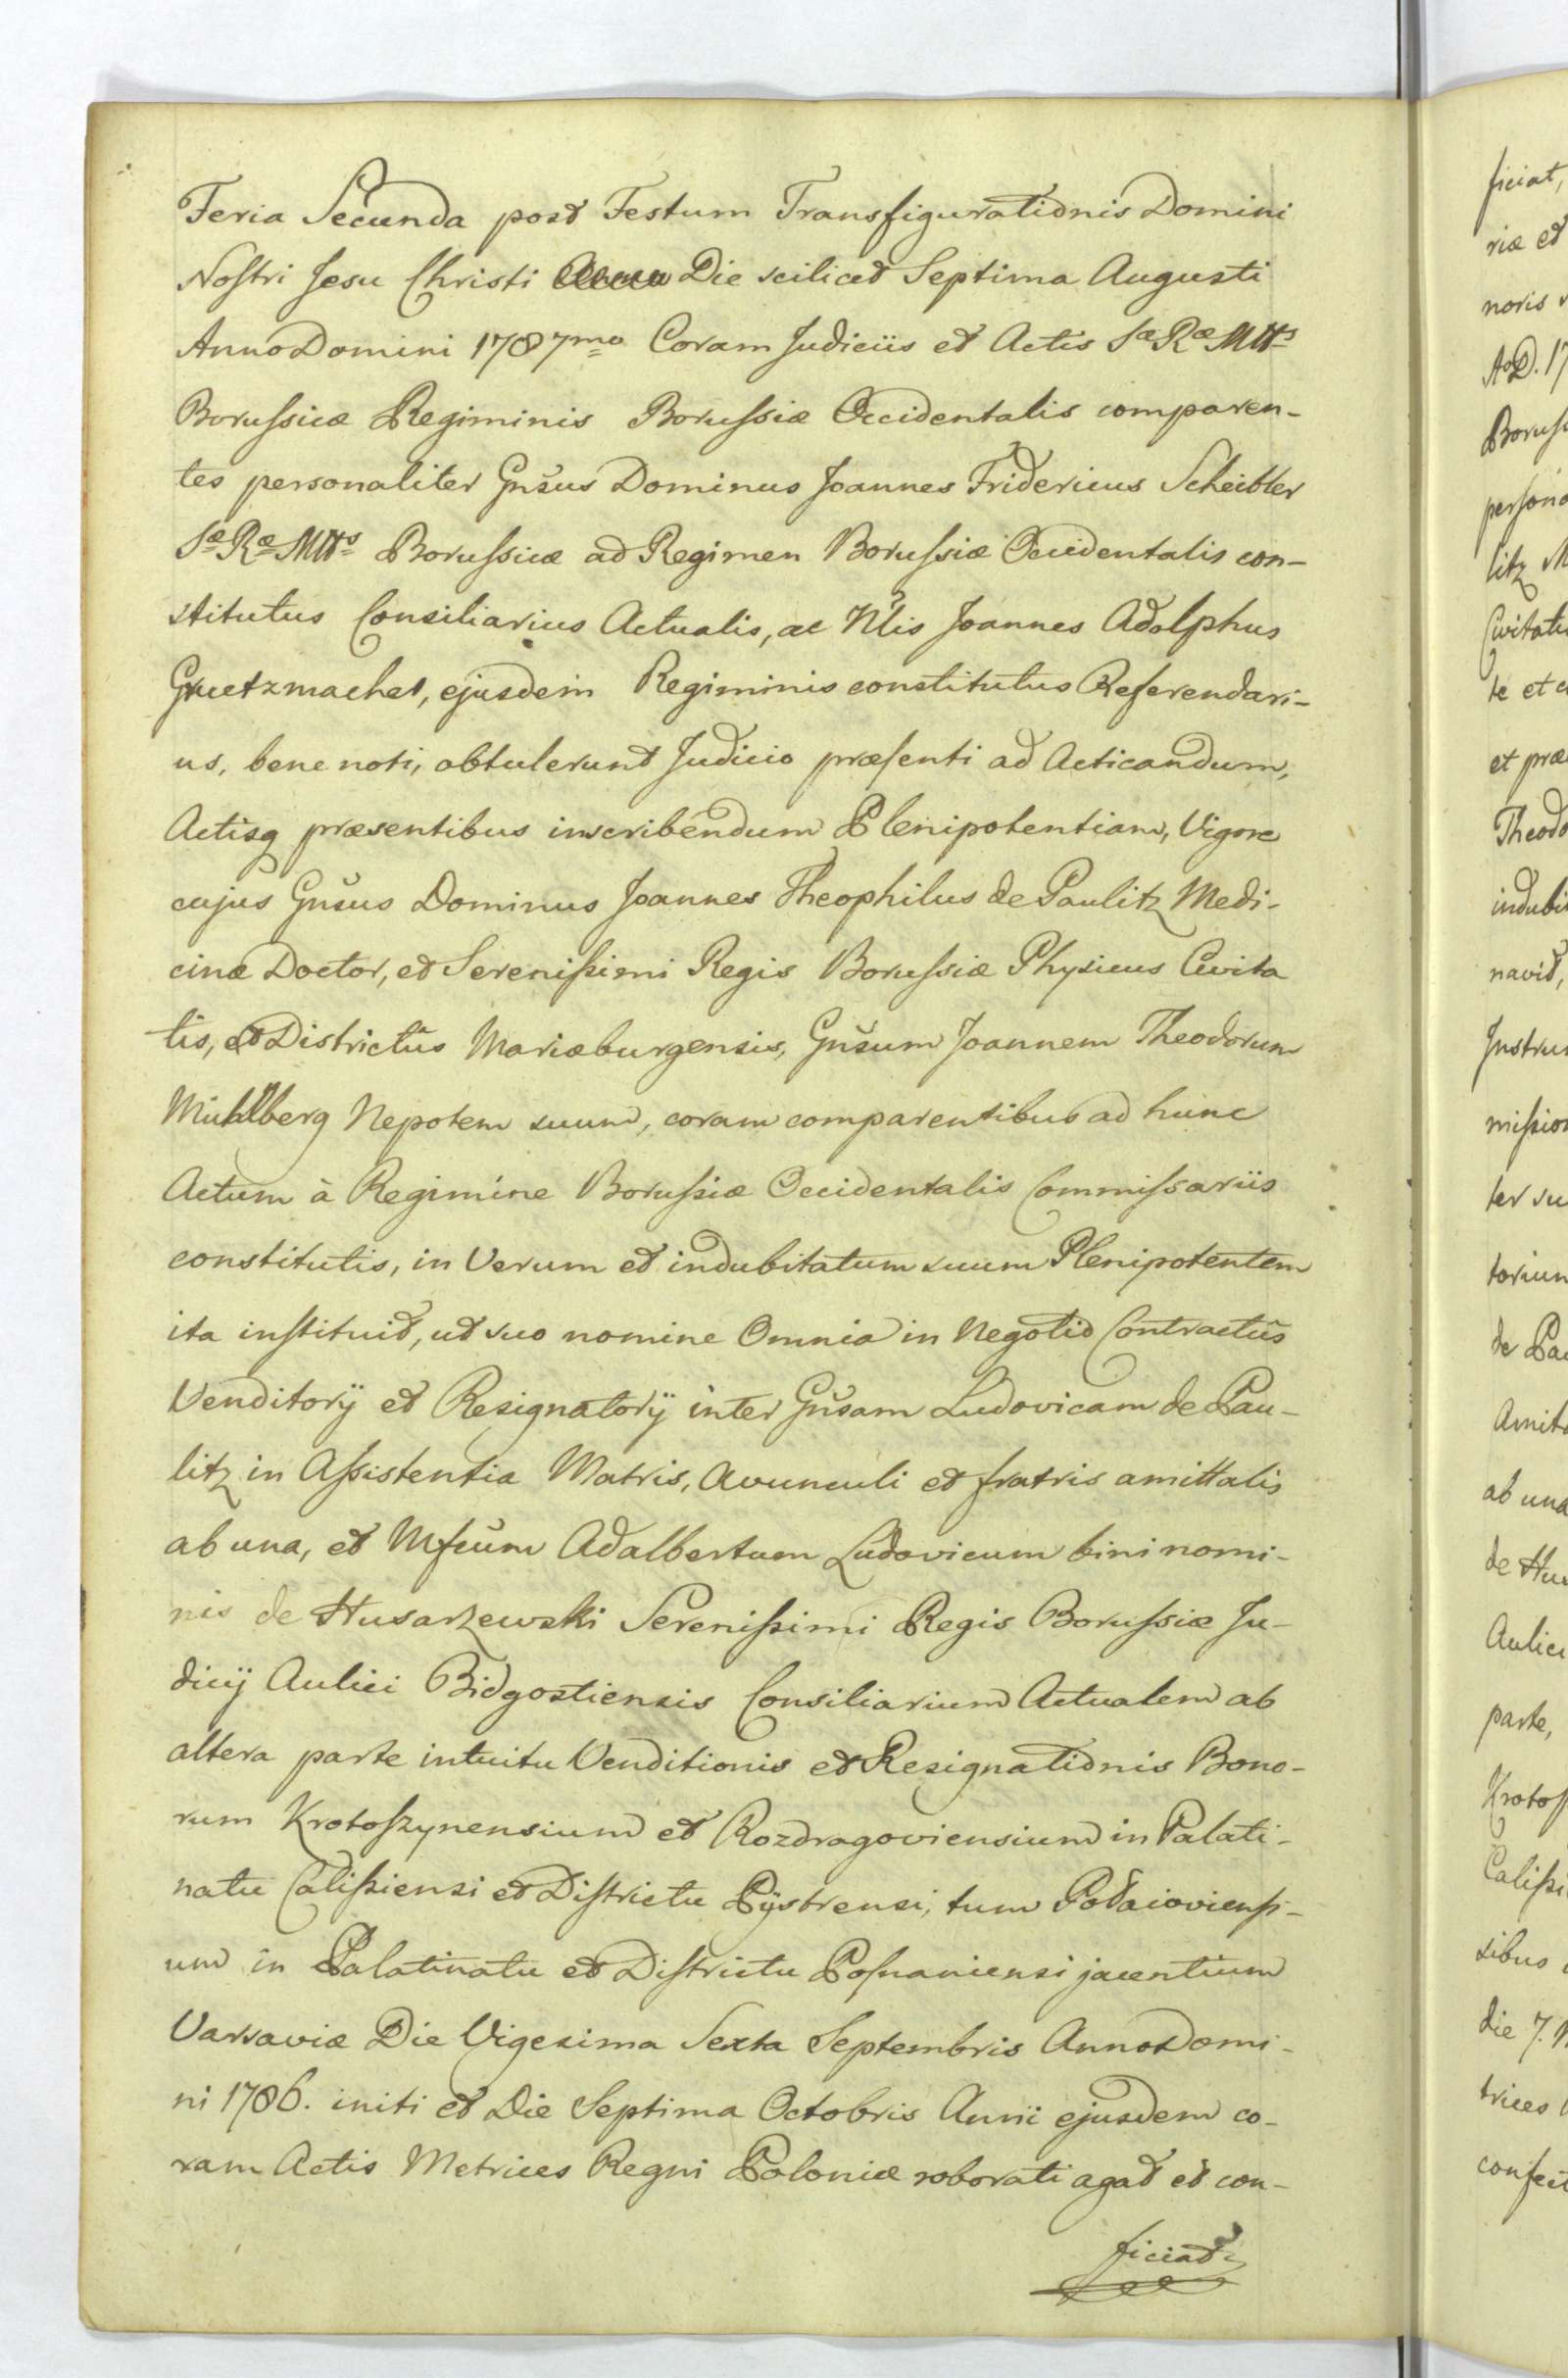 Feria Secunda post Festum Transfigurationis Domini
Nostri Jesu Christi Die scilicet Septima Augusti
Anno Domini 1787mo Coram Judiciis et Actis Sæ Ræ Mttis
Borussicæ Regiminis Borussiæ Occidentalis comparen-
tes personaliter Gnsus Dominus Joannes Fridericus Scheibler
Sæ Ræ Mttis Borussicæ ad Regimen Borussiæ Occidentalis con-
stitutus Consiliarius Actualis, ac Nlis Joannes Adolphus
Gruetzmacher, ejusdem Regiminis constitutus Referendari-
us, bene noti, obtulerunt Judicio præsenti ad Acticandum,
Actisq præsentibus inscribendum Plenipotentiam, Vigore
cujus Gnsus Dominus Joannes Theophilus de Paulitz Medi-
cinæ Doctor, et Serenissimi Regis Borussiæ Physicus Civita
tis, et Districtûs Mariæburgensis, Gnsum Joannem Theodorum
Muhlberg Nepotem suum, coram comparentibus ad hunc
Actum à Regimine Borussiæ Occidentalis Commissariis
constitutis, in Verum et indubitatum suum Plenipotentem
ita instituit, ut suo nomine Omnia in Negotio Contractûs
Venditorÿ et Resignatorÿ inter Gnsam Ludovicam de Pau-
litz in Assistentia Matris, Avunculi et fratris amittalis
ab una, et Mfcum Adalbertum Ludovicum bini nomi-
nis de Husarzewski Serenissimi Regis Borussiæ Ju-
dicÿ Aulici Bidgostiensis Consiliarium Actualem ab
altera parte intuitu Venditionis et Resignationis Bono-
rum Krotoszynensium et Rozdragoviensium in Palati-
natu Calissiensi et Districtu Pÿstrensi, tum Podaioviensi-
um in Palatinatu et Districtu Posnaniensi jacentium
Varsaviæ Die Vigesima Sexta Septembris Anno Domi-
ni 1786. initi et Die Septima Octobris Anni ejusdem co-
ram Actis Metrices Regni Poloniæ roborati agat et con-
ficiat
ficiat,
riæ et
noris
AoD. 17
Boruss
persona
litz M
Civitati
te et c
et præ
Theodo
indubi
navit,
Instru
mission
ter su
torium
de Pau
Amit
ab una
de Hus
Aulici
parte,
Krotos
Calissi
sibus
die 7.
trices
confect